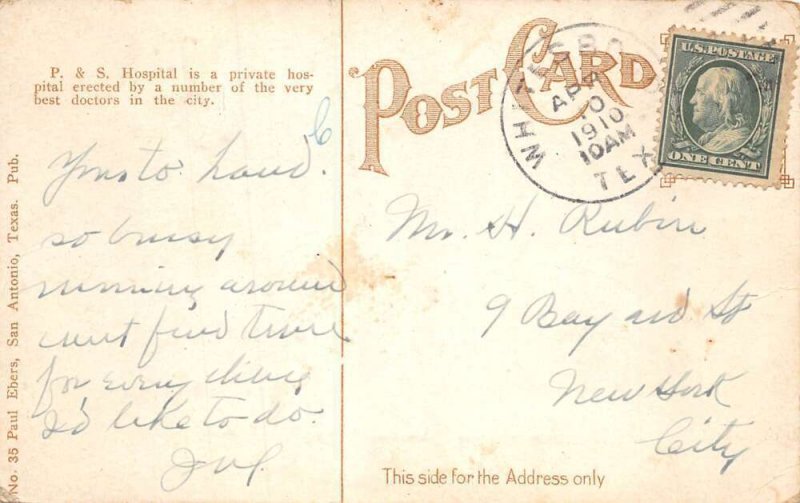 P. & S. Hospital is a private hos-
pital erected by a number of the very
best doctors in the city.
POST CARD
WHITESBORO
APR
1910
10AM
TEX
U.S. POSTAGE
ONE CENT
Yours to hand.
so bussy
running around
cant find time
for everything
I'd like to do.
Mr. H. Rubin
9 Bayard St
New York
City
This side for the Address only
No. 35 Paul Ebers, San Antonio, Texas. Pub.